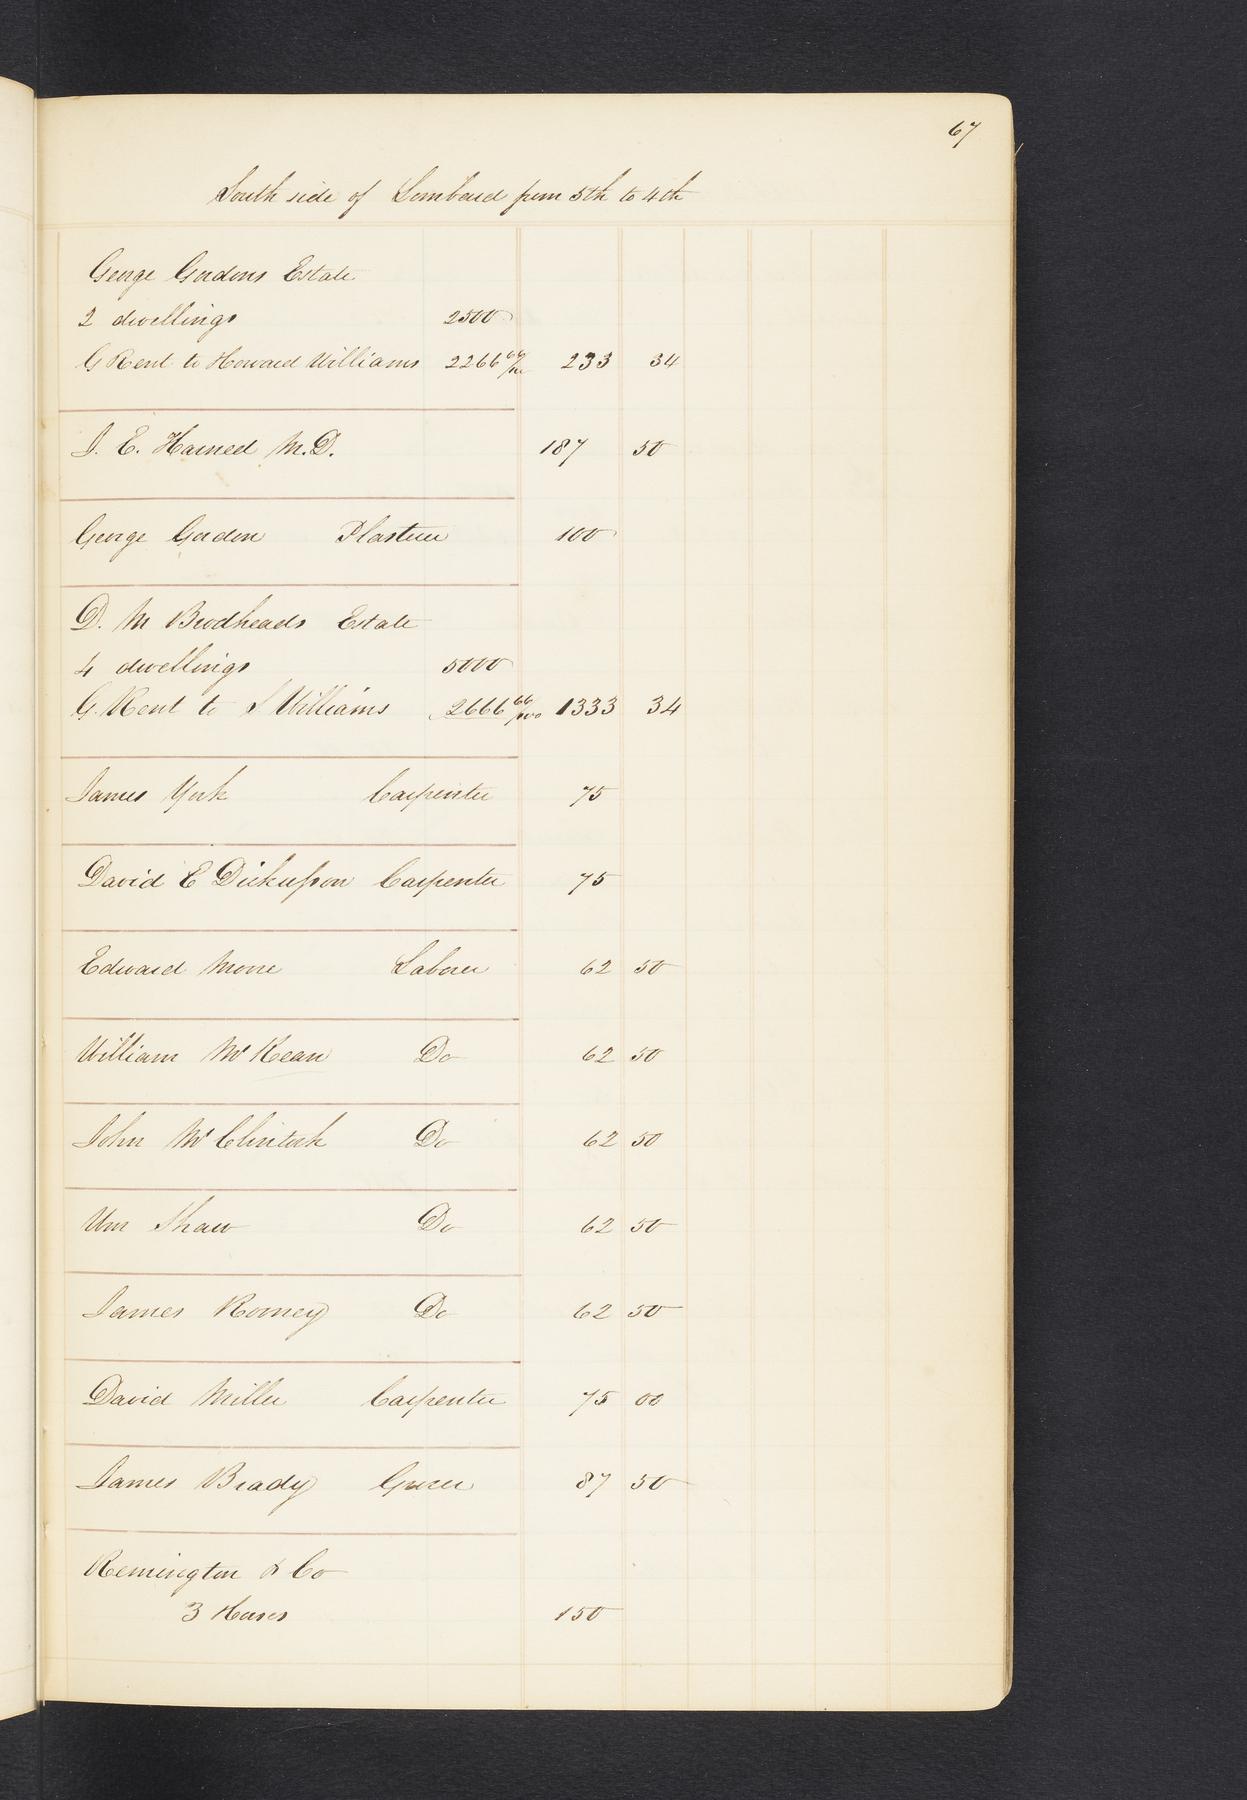 67
South side of Lombard from 5th to 4th
George Gordons Estate
2 dwellings 2500
G Rent to Howard Williams 2266 66/100 233 34
J. E. Harned M.D. 187 50
George Gordon Plasterer 100
D. M Brodheads Estate
4 dwellings 5000
G. Rent to S Williams 2666 66/100 1333 34
James York Carpenter 75
David E Dickerson Carpenter 75
Edward Moore Laborer 62 50
William McKean Do 62 50
John McClintock Do 62 50
Wm Shaw Do 62 50
James Romey Do 62 50
David Miller Carpenter 75 00
James Brady Grocer 87 50
Remington & Co
3 Horses 150